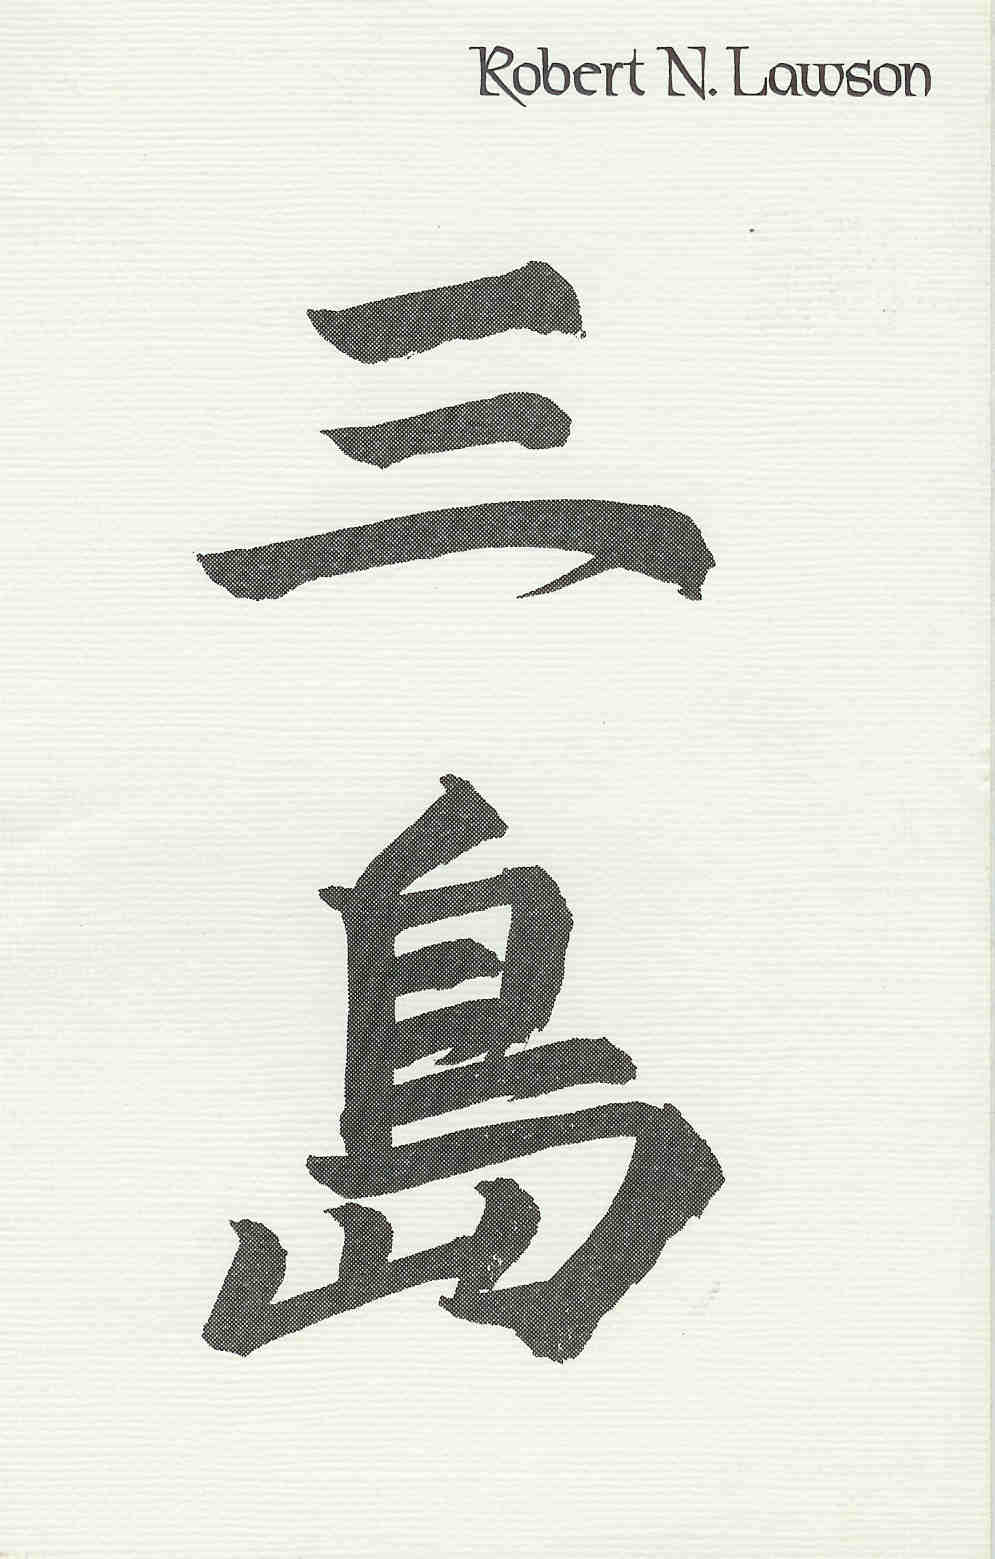 Robert N. Lawson
三
島